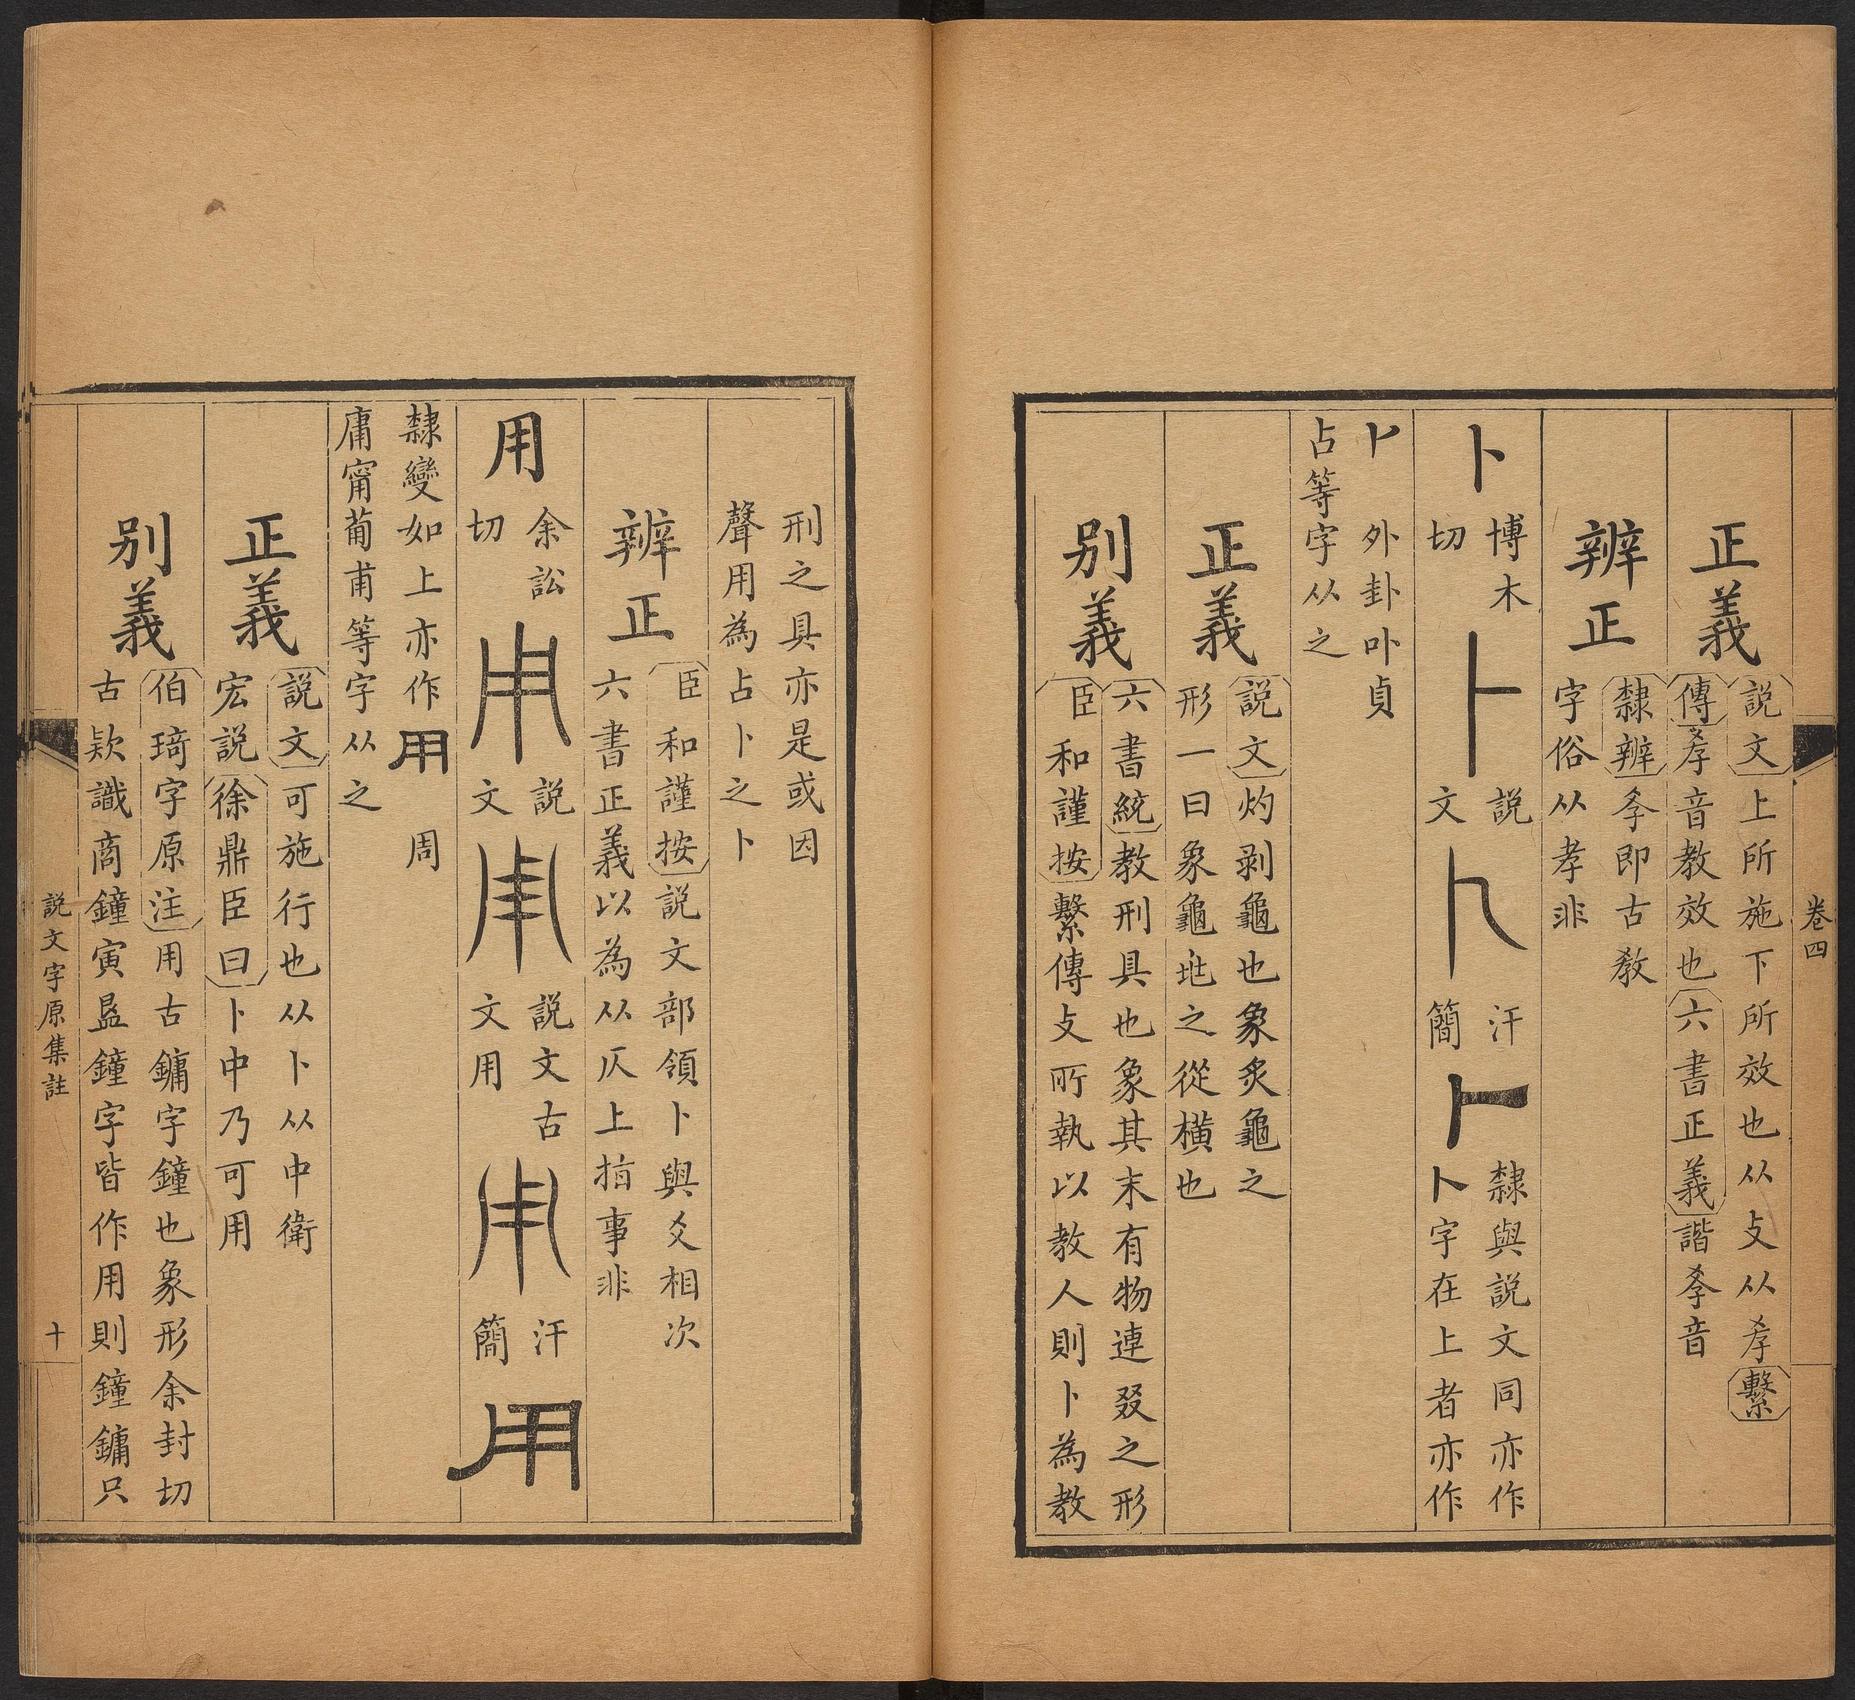 卷四
正義
說文上所施下所效也从攴从孝繫
傳孝音教效也六書正義諧孝音
辨正
隸辨孝即古教
字俗从孝非
卜
博木
切
卜
說
文
卜
汗
簡
卜
隸與說文同亦作
卜字在上者亦作
卜外卦卟貞
占等字从之
正義
說文灼剥龜也象炙龜之
形一曰象龜兆之從橫也
別義
六書統教刑具也象其末有物連叕之形
臣和謹按繫傳攴所執以教人則卜為教
刑之具亦是或因
聲用為占卜之卜
辨正
臣和謹按說文部領卜與爻相次
六書正義以為从仄上指事非
用
余訟
切
用
說
文
用
說文古
文用
用
汗
簡
用
隸變如上亦作用周
庸甯葡甫等字从之
正義
說文可施行也从卜从中衛
宏說徐鼎臣曰卜中乃可用
別義
伯琦字原注用古鏞字鐘也象形余封切
古欵識商鐘寅盄鐘字皆作用則鐘鏞只
說文字原集註
十